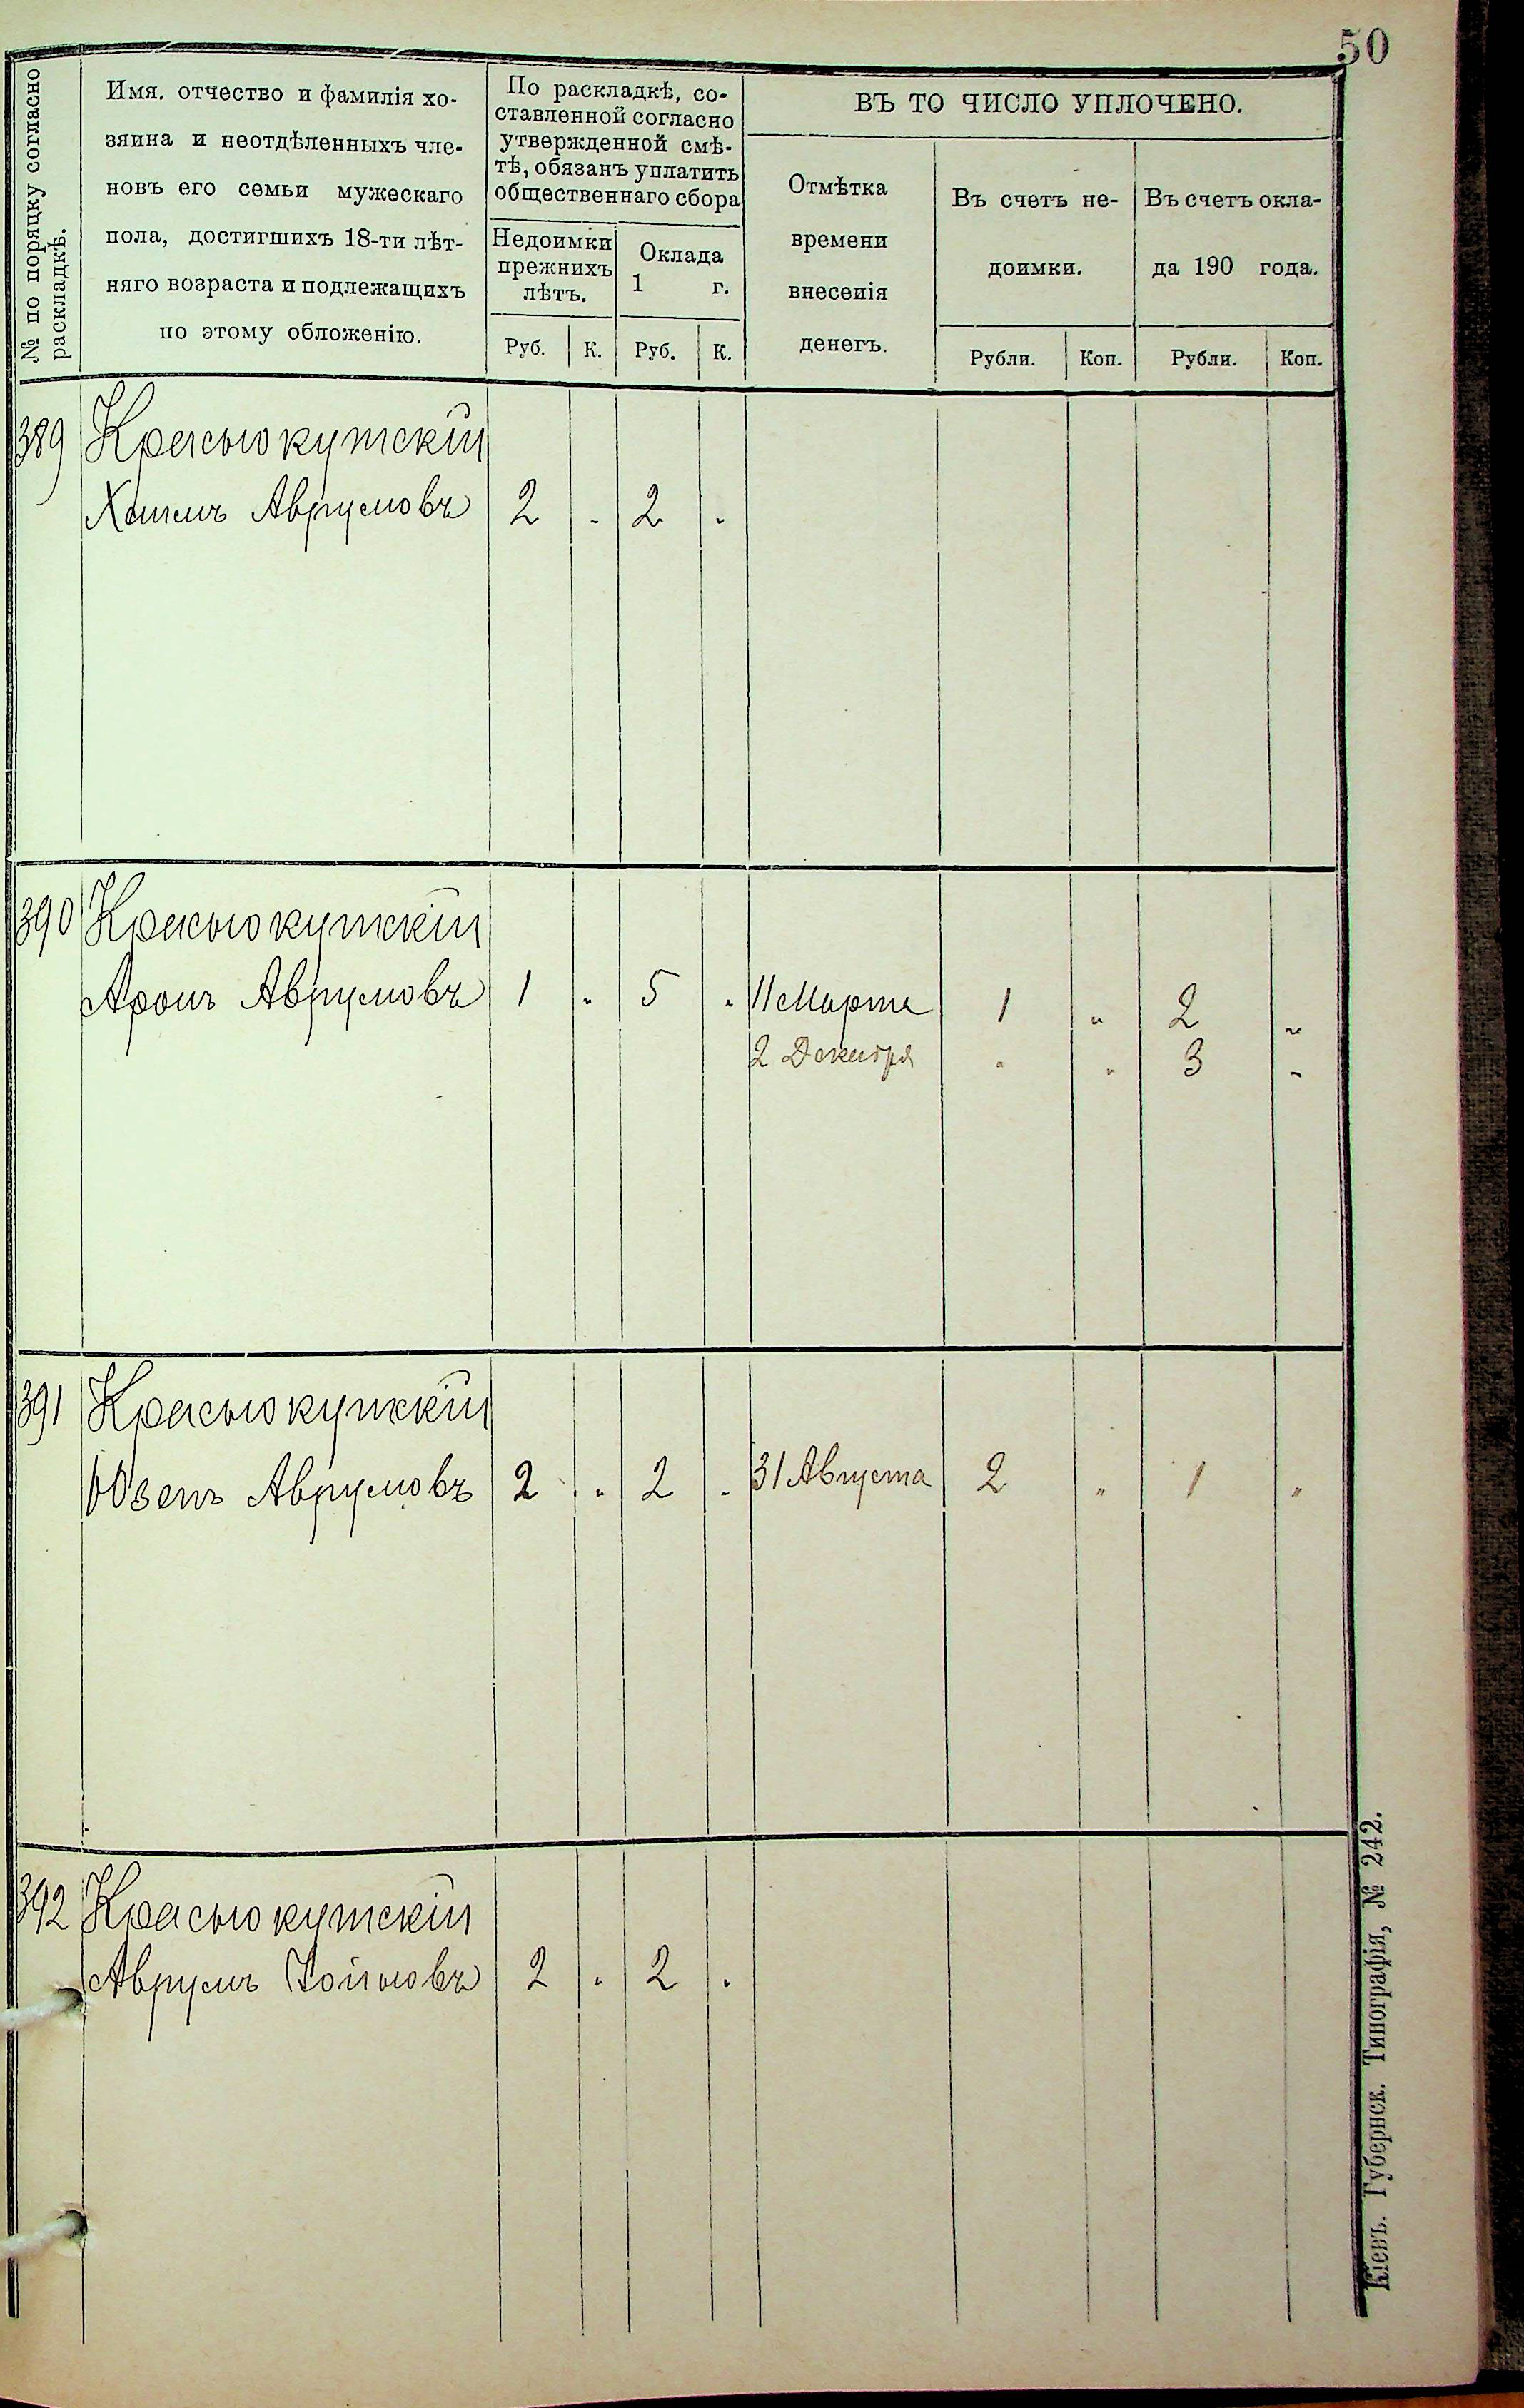 50
№ по порядку согласно
раскладкѣ.
Имя. отчество и фамилія хо-
зяина и неотдѣленныхъ чле-
новъ его семьи мужескаго
пола, достигшихъ 18-ти лѣт-
няго возраста и подлежащихъ
по этому обложенію.
По раскладкѣ, со-
ставленной согласно
утвержденной смѣ-
тѣ, обязанъ уплатить
общественнаго сбора
Недоимки
прежнихъ
лѣтъ.
Оклада
1 г.
Руб. К. Руб. К.
ВЪ ТО ЧИСЛО УПЛОЧЕНО.
Отмѣтка
времени
внесенія
денегъ.
Въ счетъ не-
доимки.
Въ счетъ окла-
да 190 года.
Рубли. Коп. Рубли. Коп.
389 Краснокутскій
Аврумовъ 2 " 2 "
390 Краснокутскій
Аронъ Аврумовъ 1 " 5 " 11 Марта 1 " 2 "
2 Декабря " " 3 "
391 Краснокутскій
Юзепъ Аврумовъ 2 " 2 " 31 Августа 2 " 1 "
392 Краснокутскій
Аврумъ 2 " 2 "
Кіевъ. Губернск. Типографія, № 242.